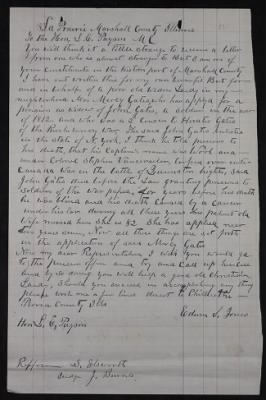 La Prairie Marshall County Illinois
To the Hon. L. E. Payson M C
You will think it a little strange to receive a letter
from one who is almost stranger to But I am one of
your Constituents in the western part of Marshall County
I have not written this for my own benefit But for
and in behalf of a poor old widow Lady in my
neighborhood Mrs Mercy Gates who has applied for a
pension as widow of John Gates, a soldier in the war
of 1812 and who was a Cousin to Horatio Gates
of the Revolutionary War. The said John Gates enlisted
in the State of N. York, I think he told previous to
his death, that his Captains name was and
under Colonel Stephen Vanrensselaer, crossed over into
Canada was in the battle of Queenston hights, said
John Gates died before the Law granting pensions to
soldiers of the war papers, for years before his death
he was blind and his death caused by a Cancer
under his Jaw During all these years his patient old
wife nursed She is 82 She has applied near
two years since, Now all these things are set forth
in the application of said Mercy Gates
Now my dear Representative I wish you would go
to the pension office and try and call up
and by so doing you will help a good old Christian
Lady, Should you succeed in accomplishing any thing
please write me a few lines direct to
Peoria County Ills
Edwin S. Jones
Hon L. E. Payson
S. Elsworth
Judge J. Burns